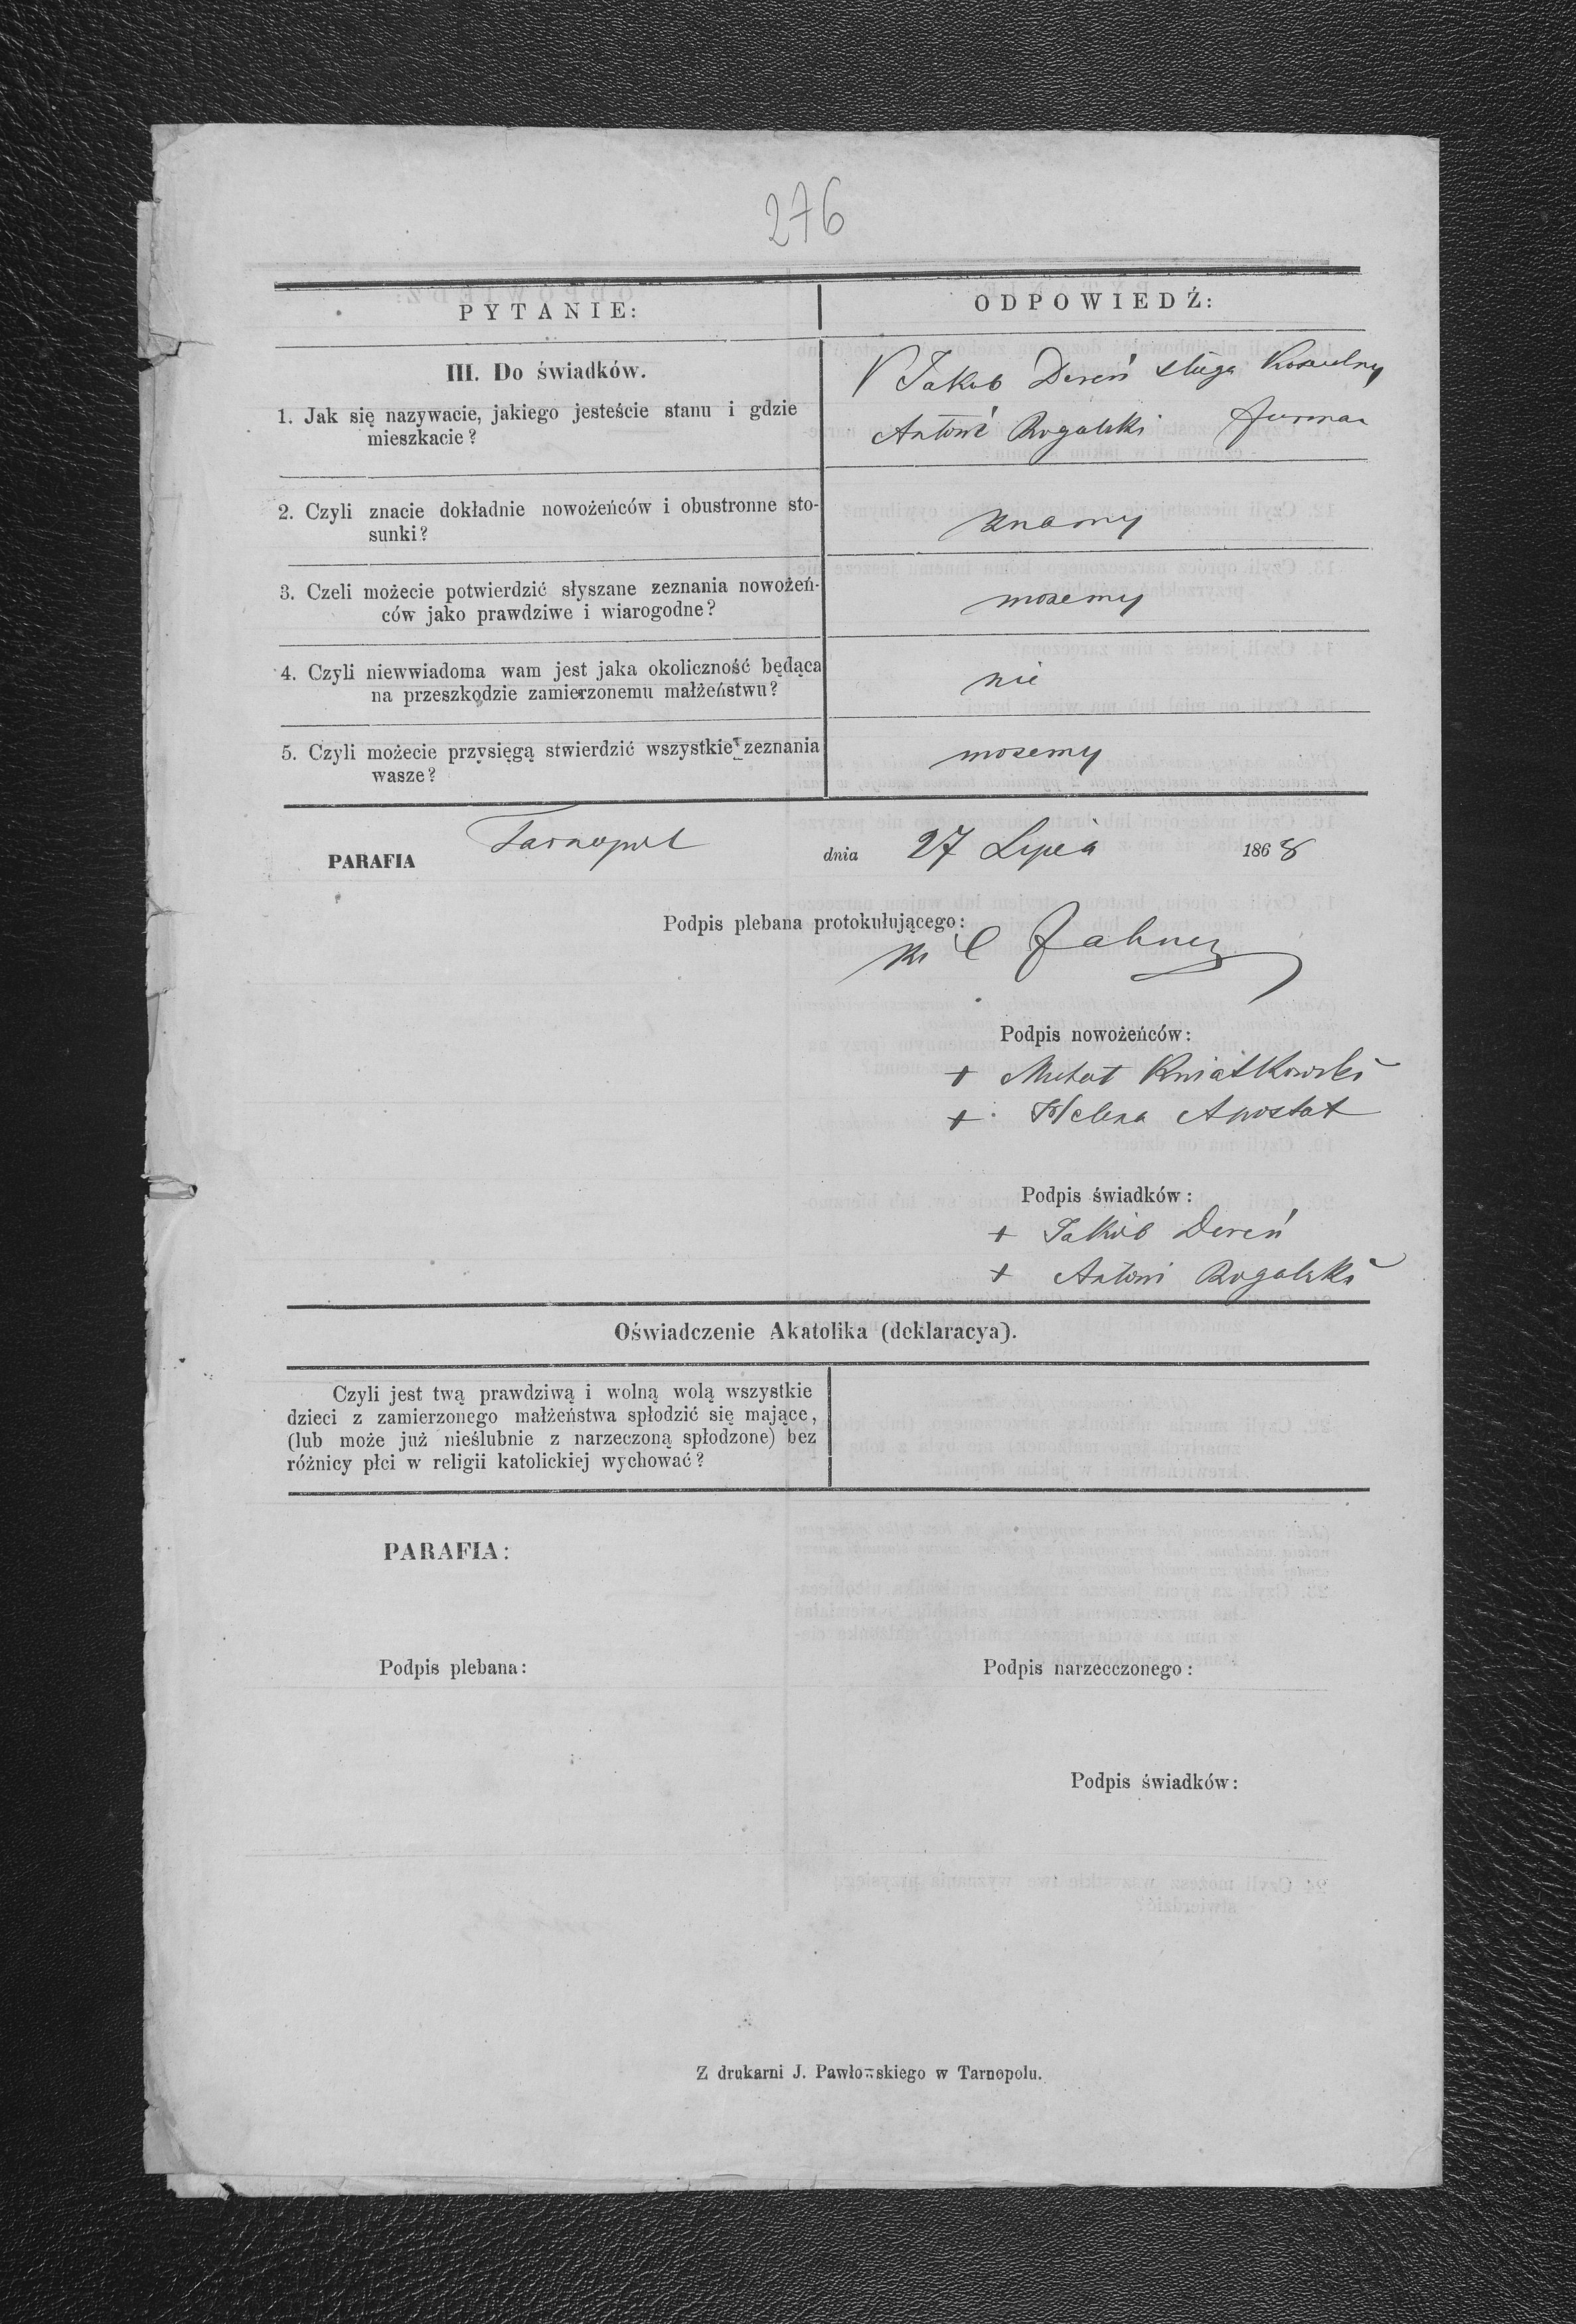 276
PYTANIE:
ODPOWIEDŹ:
III. Do świadków.
1. Jak się nazywacie, jakiego jesteście stanu i gdzie
mieszkacie?
Jakób Dereń sługa
Antoni Rogalski furman
2. Czyli znacie dokładnie nowożeńców i obustronne sto-
sunki?
znamy
3. Czeli możecie potwierdzić słyszane zeznania nowożeń-
ców jako prawdziwe i wiarogodne?
mozemy
4. Czyli niewwiadoma wam jest jaka okoliczność będąca
na przeszkodzie zamierzonemu małżeństwu?
nie
5. Czyli możecie przysięgą stwierdzić wszystkie zeznania
wasze?
mozemy
PARAFIA Tarnopol dnia 27 Lipca 1868
Podpis plebana protokułującego:
Podpis nowożeńców:
+ Michał Kwiatkowski
+ Helena Apostat
Podpis świadków:
+ Jakób Dereń
+ Antoni Rogalski
Oświadczenie Akatolika (deklaracya).
Czyli jest twą prawdziwą i wolną wolą wszystkie
dzieci z zamierzonego małżeństwa spłodzić się mające,
(lub może już nieślubnie z narzeczoną spłodzone) bez
różnicy płci w religii katolickiej wychować?
PARAFIA:
Podpis plebana:
Podpis narzecczonego:
Podpis świadków:
Z drukarni J. Pawłowskiego w Tarnopolu.